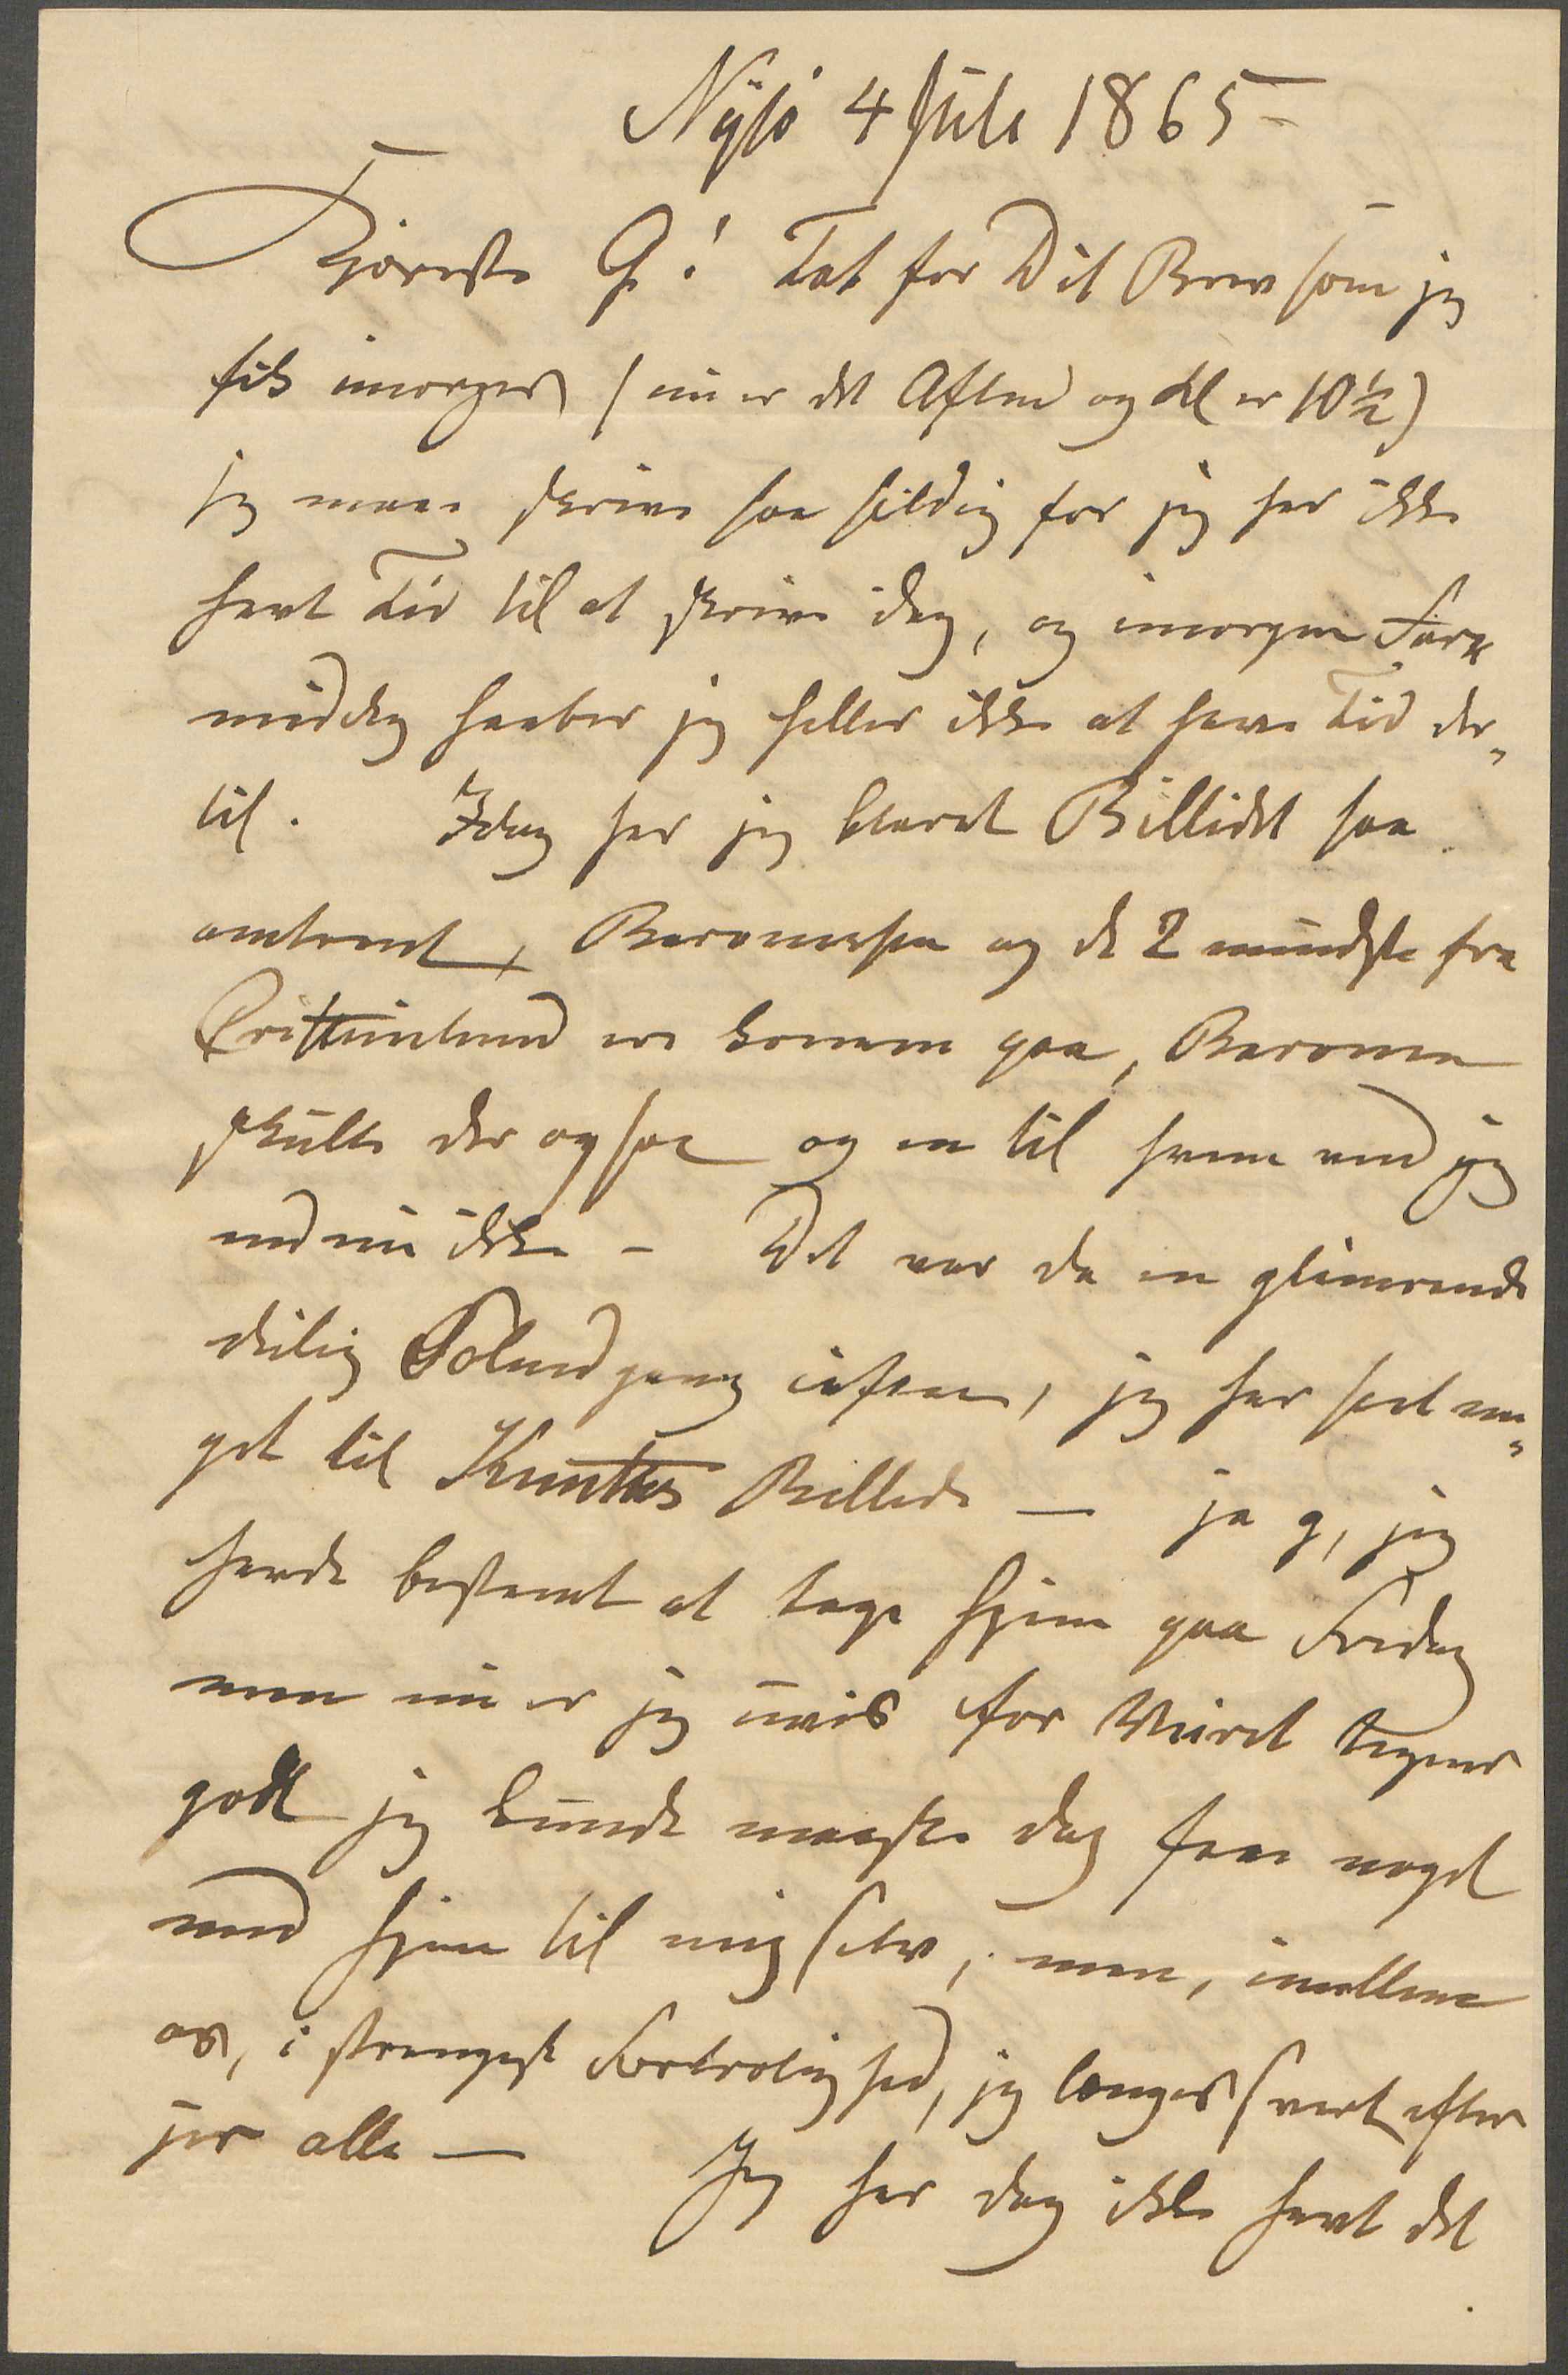 Nysø 4 Juli 1865 –
Kjæreste G! Tak for Dit Brev som jeg
fik imorges (nu er det Aften og Kl er 10½)
jeg maa skrive saa sildig for jeg har ikke
havt Tid til at skrive idag, og imorgen For
middag haaber jeg heller ikke at have Tid der„
til. Idag har jeg klaret Billedet saa
omtrent, Baronessen og de 2 mindste fra
Cristinelund ere komne paa, Baronen
skulle der ogsaa og en til hvem veed jeg
endnu ikke – Det var da en glimrende
deilig Solnedgang iaften, jeg har seet no„
get til Knuthes Billede — ja g, jeg
havde bestemt at tage hjem paa Fredag
men nu er jeg uvis for Veiret tegner
godt jeg kunde maaske dog faae noget
med hjem til mig selv, men, imellem
os, i strengeste Fortrolighed, jeg længes svært efter
jer alle — Jeg har dog ikke havt det